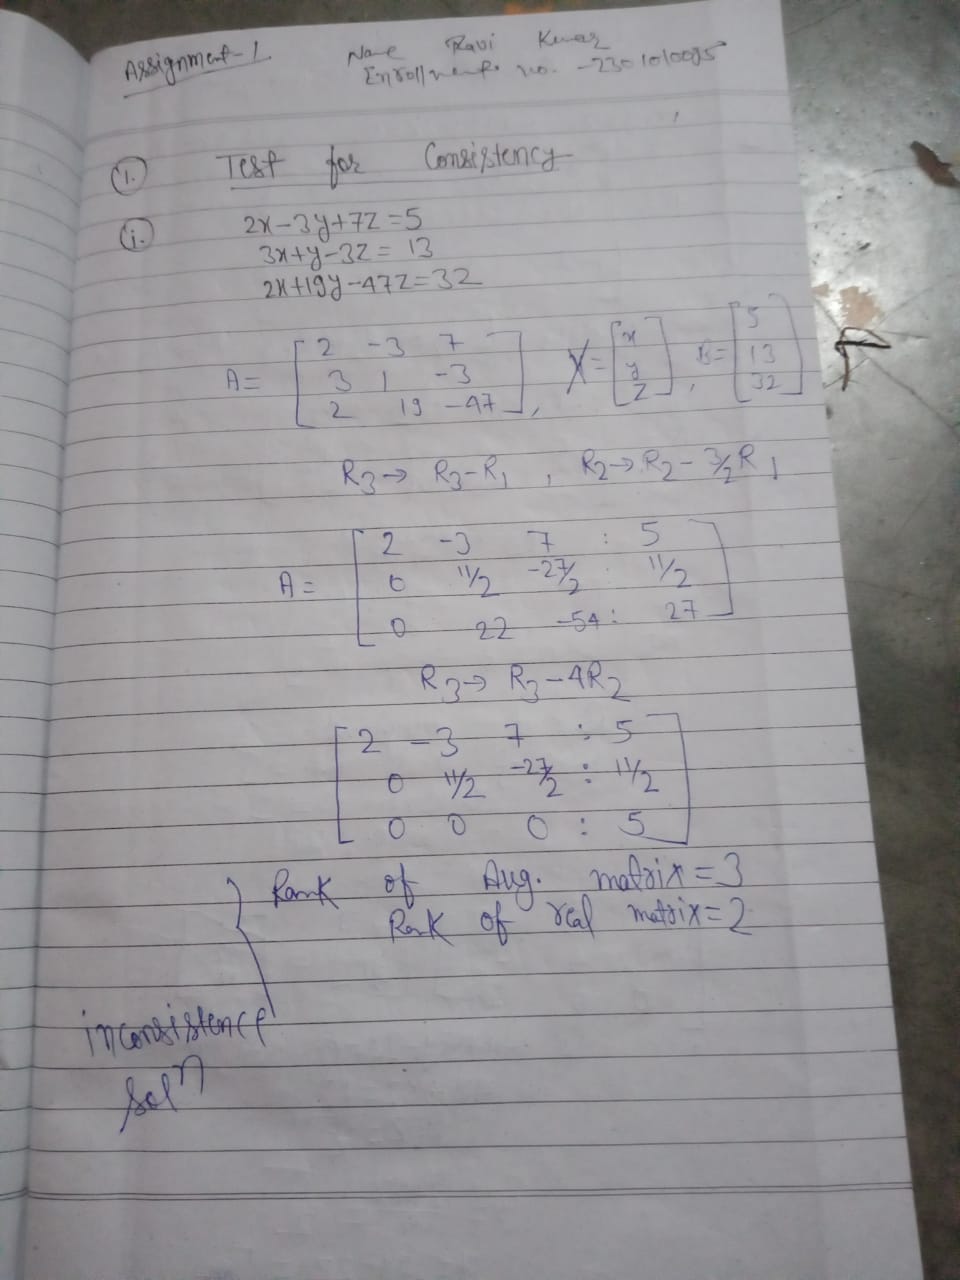 Assignment-1
Name Ravi Kumar
Enrollment no. -2301010095
1. Test for Consistency
i. 2x-3y+7z=5
3x+y-3z= 13
2x+19y-47z=32
A= [ 2 -3 7 ; 3 1 -3 ; 2 19 -47 ], X= [ x ; y ; z ], B= [ 5 ; 13 ; 32 ]
R3→ R3-R1 , R2→R2-3/2R1
A= [ 2 -3 7 : 5
0 11/2 -27/2 : 11/2
0 22 -54 : 27 ]
R3→ R3-4R2
[ 2 -3 7 : 5
0 11/2 -27/2 : 11/2
0 0 0 : 5 ]
Rank of Aug. matrix=3
Rank of real matrix=2
inconsistence
Solⁿ